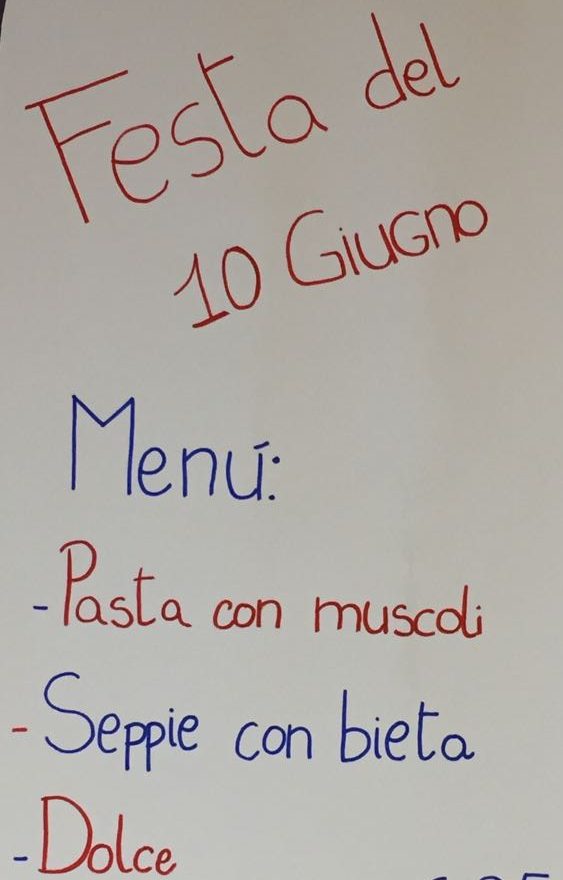 Festa del
10 Giugno
Menú:
- Pasta con muscoli
- Seppie con bieta
- Dolce